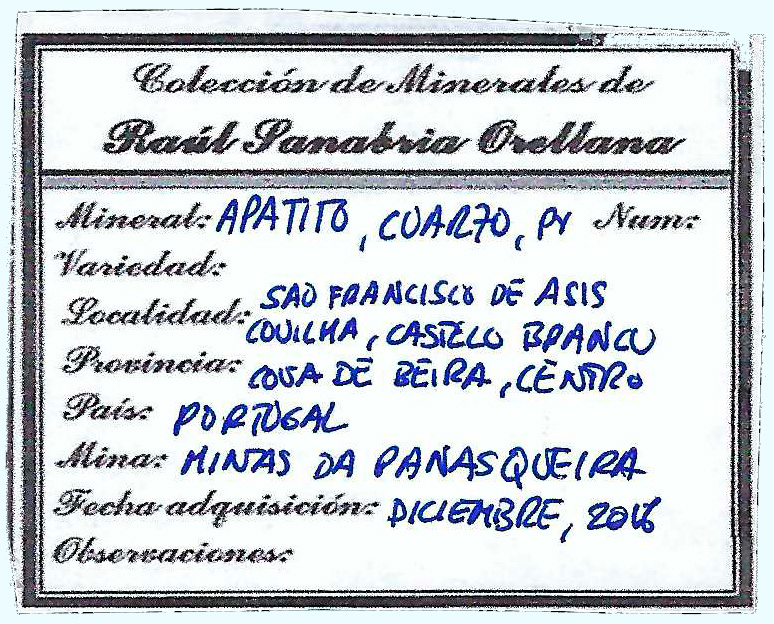 Colección de Minerales de
Raúl Sanabria Orellana
Mineral: APATITO, CUARZO, PY Num:
Variedad:
SAO FRANCISCO DE ASIS
Localidad:
COVILHA, CASTELO BRANCO
Provincia:
COVA DE BEIRA, CENTRO
País: PORTUGAL
Mina: MINAS DA PANASQUEIRA
Fecha adquisición: DICIEMBRE, 2016
Observaciones: